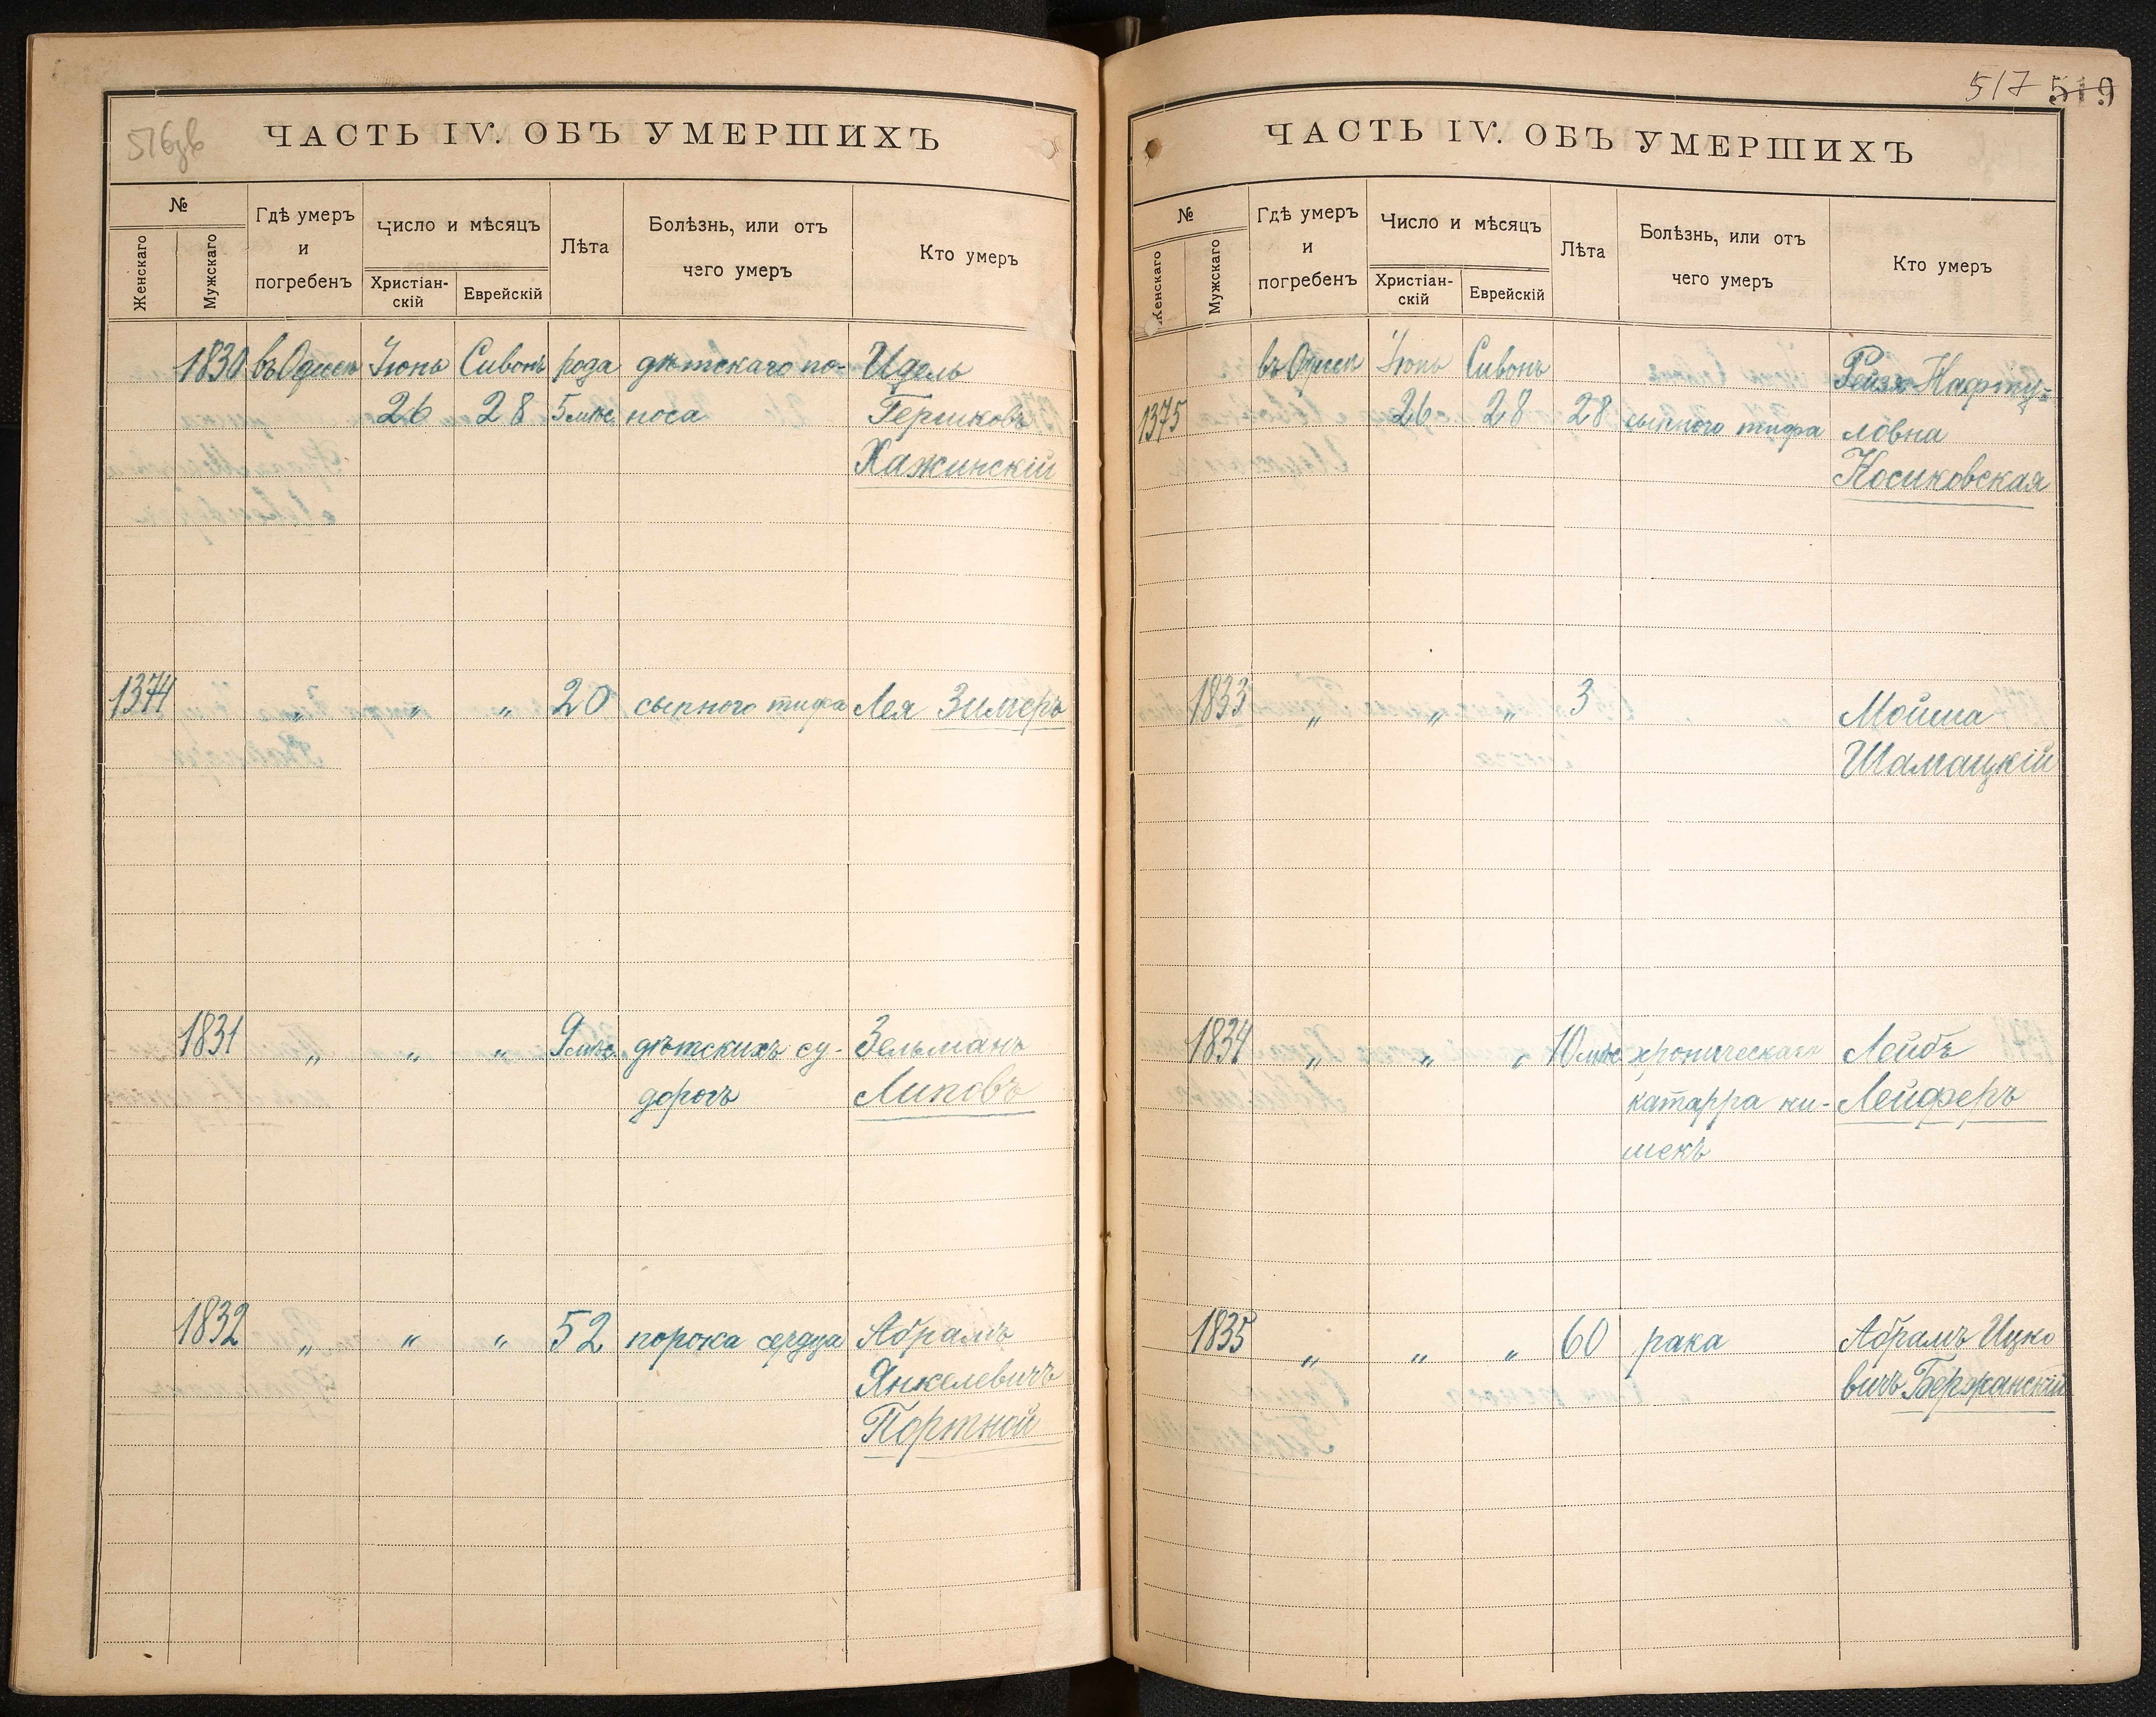 516об
ЧАСТЬ IV. ОБЪ УМЕРШИХЪ
№
Женскаго
Мужскаго
Гдѣ умеръ
и
погребенъ
Число и мѣсяцъ
Христіан-
скій
Еврейскій
Лѣта
Болѣзнь, или отъ
чего умеръ
Кто умеръ
1830 въ Одессѣ Іюнь Сивонъ года дѣтскаго по- Идель
26 28 5 мѣс. носа Гершковъ
Хажинскій
1374 „ „ „ 20 сыпного тифа Лея Зильберъ
1831 „ „ „ 9 мѣс. дѣтскихъ су- Зельманъ
дорогъ Липовъ
1832 „ „ „ 52 порока сердца Абрамъ
Янкелевичъ
Портной
517 519
ЧАСТЬ IV. ОБЪ УМЕРШИХЪ
№
Женскаго
Мужскаго
Гдѣ умеръ
и
погребенъ
Число и мѣсяцъ
Христіан-
скій
Еврейскій
Лѣта
Болѣзнь, или отъ
чего умеръ
Кто умеръ
въ Одессѣ Іюнь Сивонъ Рейзя Нафту-
1375 26 28 28 сыпного тифа ловна
Носиковская
1833 „ „ „ 3 Мойша
Шамацкій
1834 „ „ „ 10 мѣс хроническаго Лейбъ
катарра ки- Лейферъ
шекъ
1835 „ „ „ 60 рака Абрамъ Ицко
вичъ Бержанскій